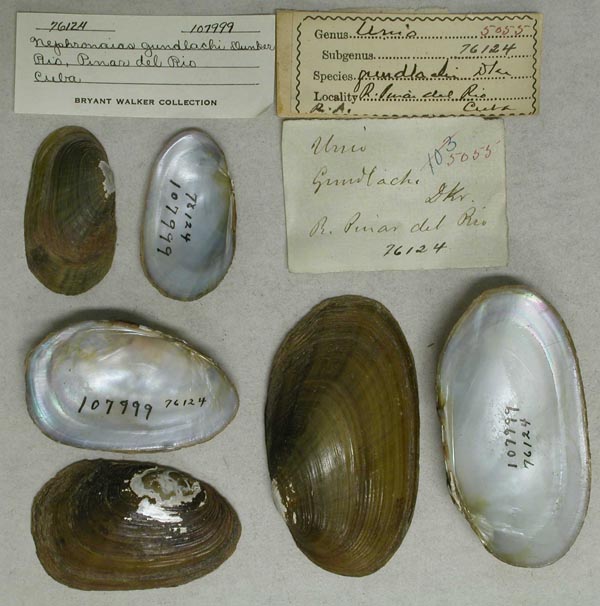 76124 107999
Nephronaias gundlachi Dunker
Rio, Pinar del Rio
Cuba
BRYANT WALKER COLLECTION
Genus Unio 5055
Subgenus 76124
Species gundlachi Dkr
Locality R. Pinar del Rio
R.A. Cuba
Unio 103 5055
Gundlachi
Dkr.
R. Pinar del Rio
76124
76124
107999
107999 76124
107999
76124